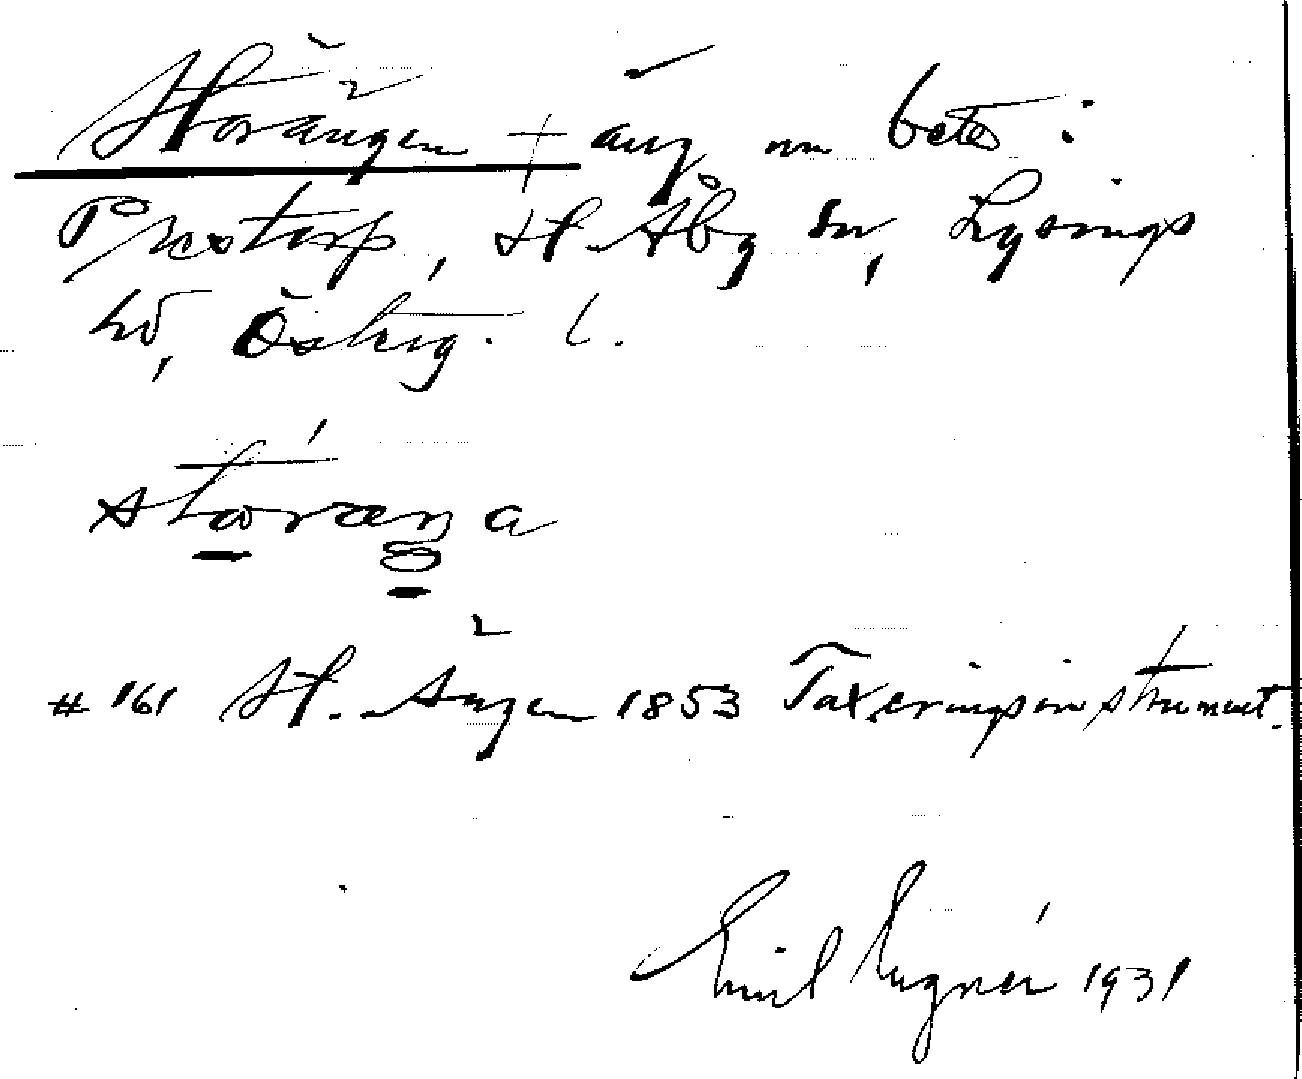 Storängen + äng nu bete i
Prestorp, St. Åby sn, Lysings
hd, Östeg. l.
storæŋa
# 161 St. Ängen 1853 Taxeringsinstrument.
Emil Eugnér 1931